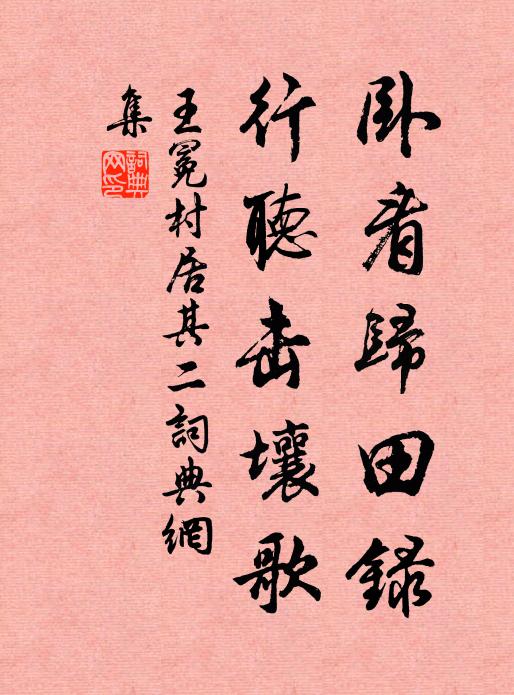 卧看歸田錄
行聽击壤歌
王冕村居其二詞典網
集
詞典網印